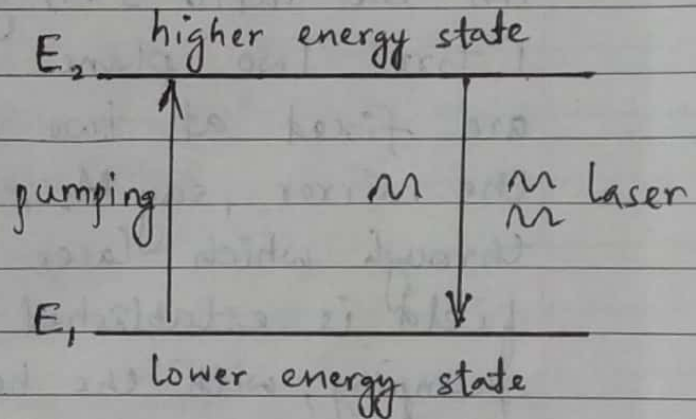 higher energy state
E₂
pumping
laser
E₁
lower energy state